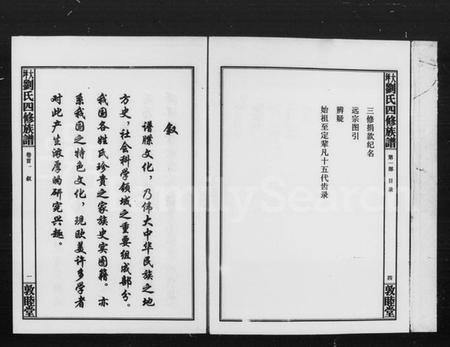 三修捐款纪名
远宗图引
辨疑
始祖至定辈凡十五代齿录
劉氏四修族譜
第一部
目录
四
敦睦堂
劉氏四修族譜
卷首
叙
一
敦睦堂
叙
谱牒文化，乃伟大中华民族之地
方史，社会科学领域之重要组成部分。
我国各姓氏珍贵之家族史实图籍。亦
系我国之特色文化，现欧美许多学者
对此产生浓厚的研究兴趣。
FamilySearch